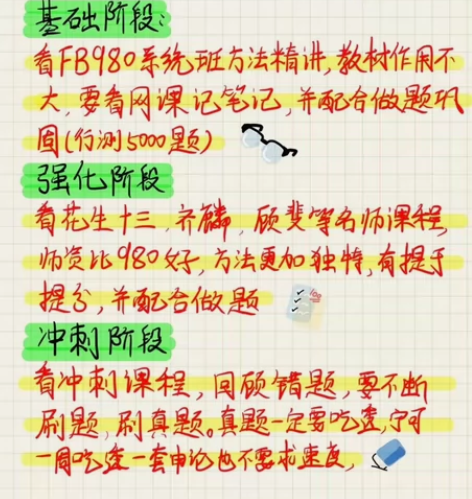 基础阶段:
看FB980系统班方法精讲,教材作用不
大,要看网课记笔记,并配合做题巩
固(行测5000题)
强化阶段
看花生十三,齐麟,顾斐等名师课程,
师资比980好,方法更加独特,有提于
提分,并配合做题
冲刺阶段
看冲刺课程,回顾错题,要不断
刷题,刷真题。真题一定要吃查,宁可
一周吃查一套申论也不要求速度,